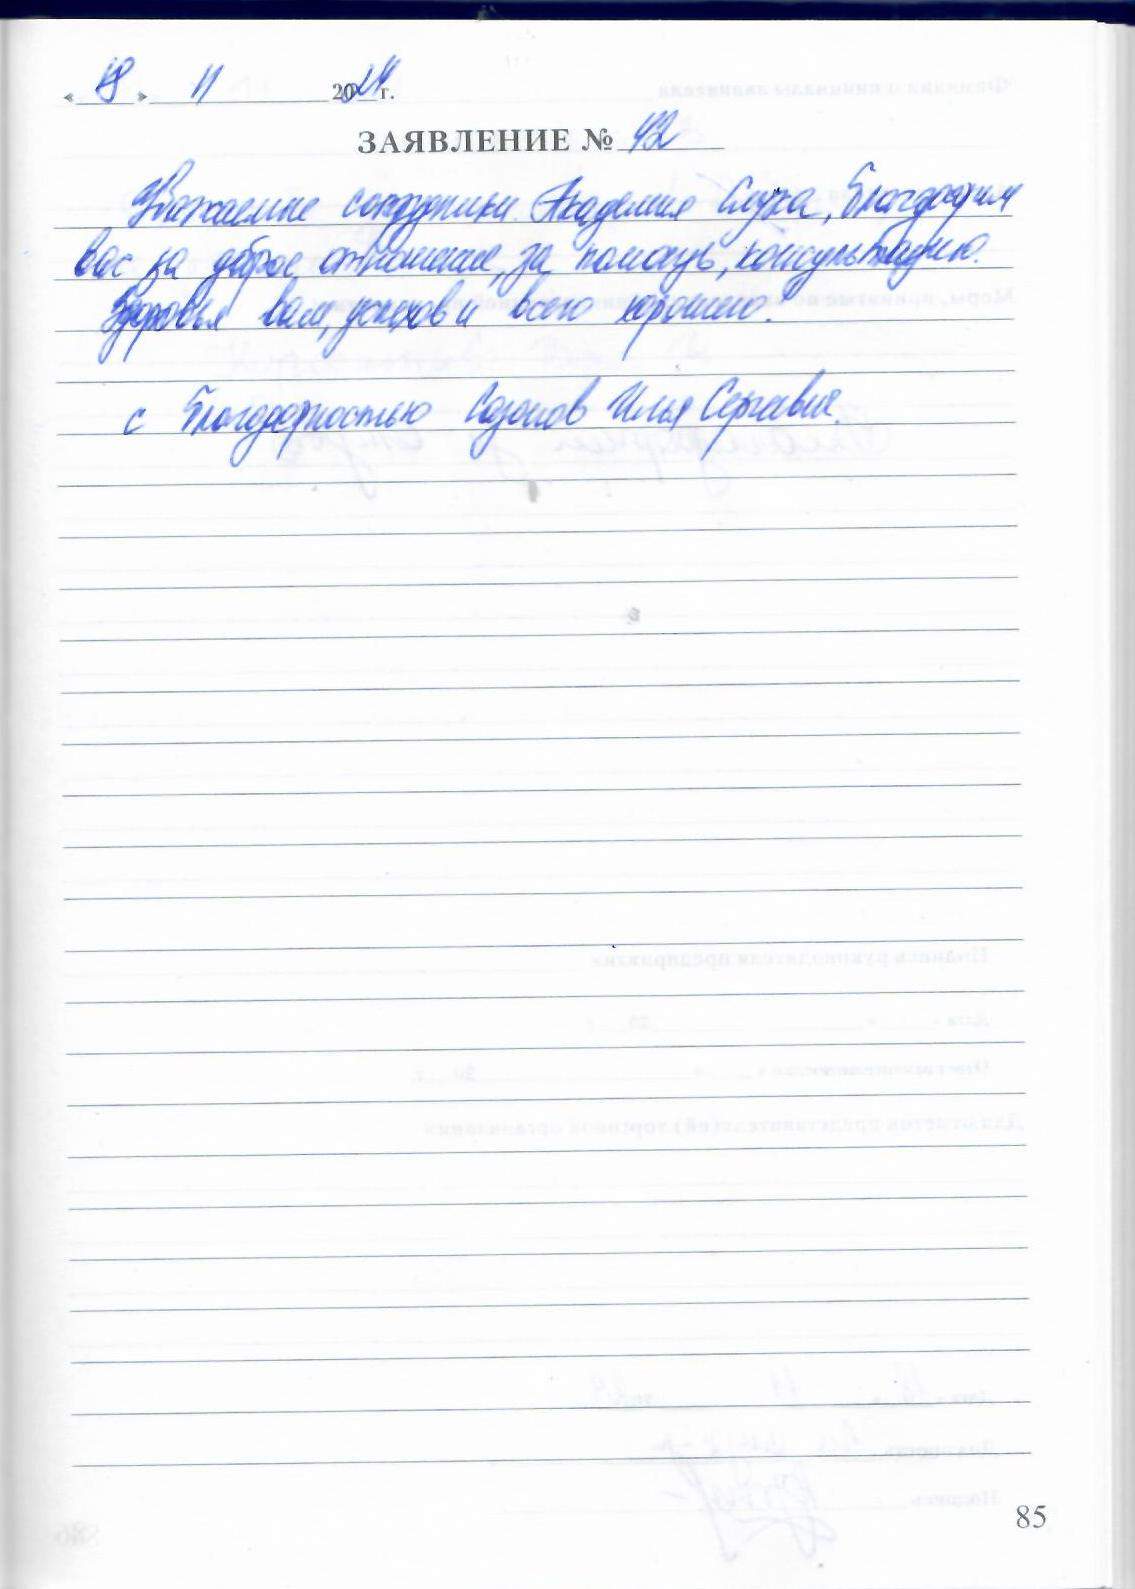 «18» 11 2024 г.
ЗАЯВЛЕНИЕ № 42
Уважаемые сотрудники Академия Слуха, Благодарим
вас за доброе отношение, за помощь, консультацию.
Здоровья вам, успехов и всего хорошего!
с Благодарностью Созонов Илья Сергеевич.
85